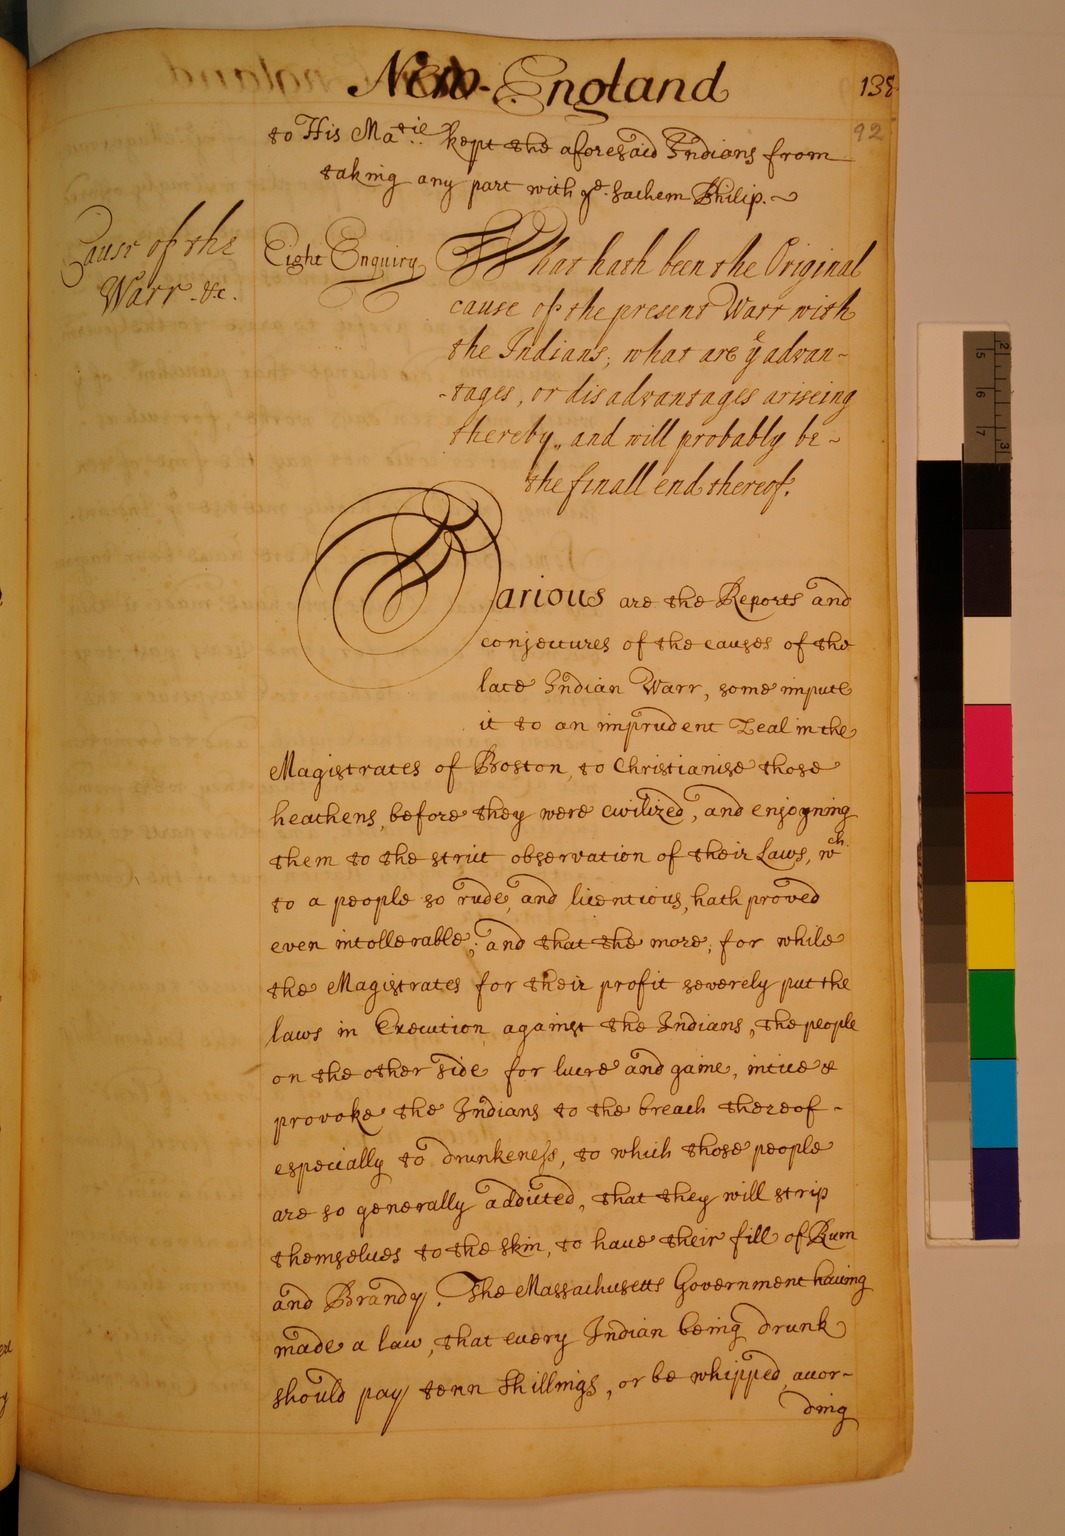 New-England
138
92
to His Ma.tie kept the aforesaid Indians from
taking any part with ye. Sachem Philip.~
Cause of the
Warr. &c.
Eight Enquiry
What hath been the Original
cause of the present Warr with
the Indians; what are ye advan-
-tages, or disadvantages ariseing
thereby, and will probably be-
the finall end thereof.
Various are the Reports and
conjectures of the causes of the
late Indian Warr, some impute
it to an imprudent Zeal in the
Magistrates of Boston, to Christianise those
heathens, before they were civilized, and enjoyning
them to the strict observation of their Laws, wch.
to a people so rude, and licentious, hath proved
even intollerable; and that the more, for while
the Magistrates for their profit severely put the
laws in Execution against the Indians, the people
on the other side for lucre and gaine, intice &
provoke the Indians to the breach thereof-
especially to drunkeness, to which those people
are so generally addicted, that they will strip
themselues to the skin, to haue their fill of Rum
and Brandy. The Massachusetts Government having
made a law, that every Indian being drunk
should pay tenn shillings, or be whipped, accor-
ding